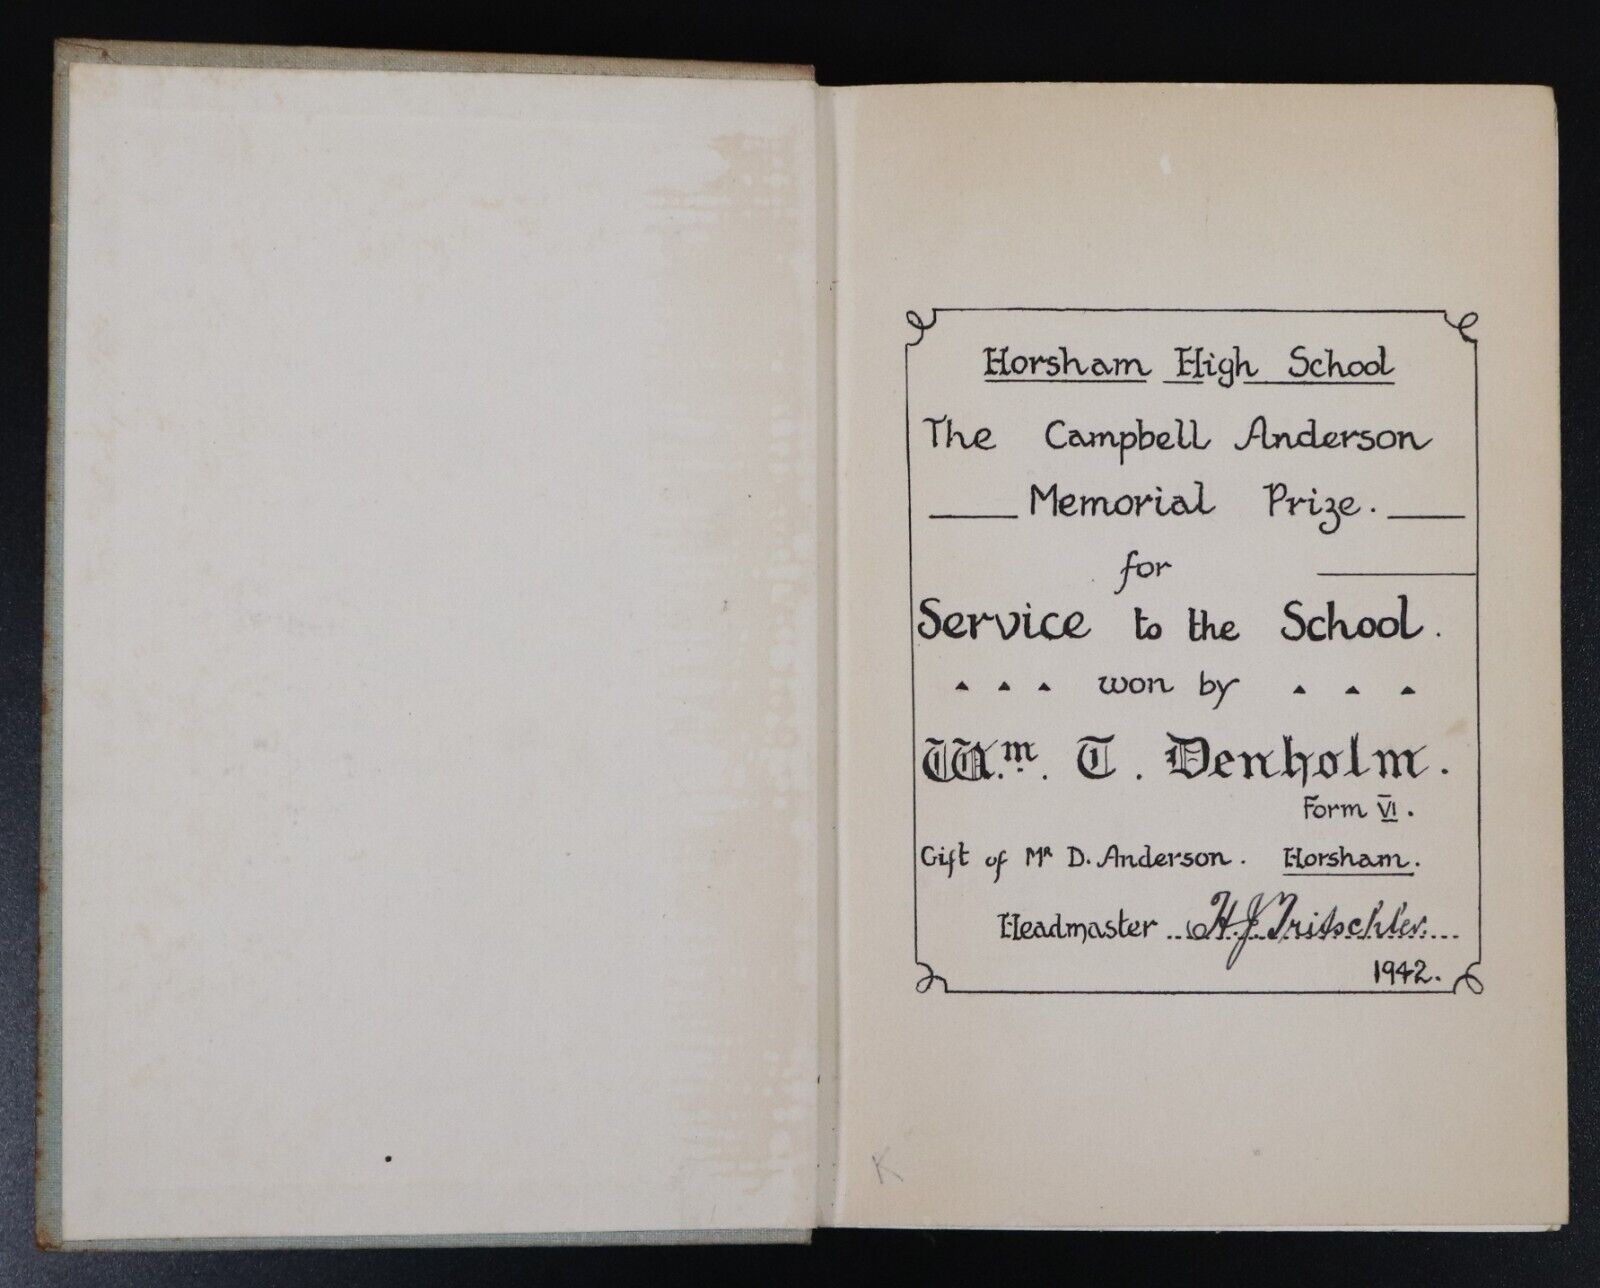 Horsham High School
The Campbell Anderson
Memorial Prize.
for
Service to the School.
won by
Wm. T. Denholm.
Form VI.
Gift of Mr D. Anderson. Horsham.
Headmaster H. J. Fritschler.
1942.
K